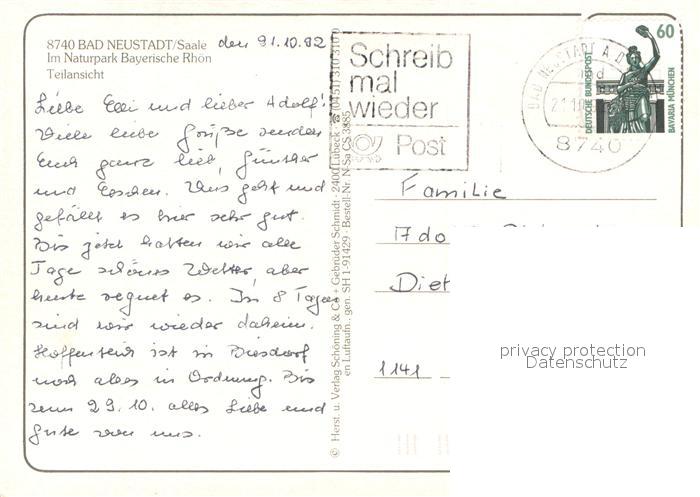 8740 BAD NEUSTADT/Saale den 21.10.92
Im Naturpark Bayerische Rhön
Teilansicht
Liebe Elli und lieber Adolf!
Viele liebe Grüße senden
Euch ganz lieb, Günther
und. Uns geht und
gefällt es hier sehr gut.
Bis jetzt hatten wir alle
Tage schönes Wetter, aber
heute regnet es. In 8 Tagen
sind wir wieder daheim.
Hoffentlich ist in Biesdorf
noch alles in Ordnung. Bis
zum 29.10. alles Liebe und
Gute von uns.
© Herst. u. Verlag Schöning & Co + Gebrüder Schmidt · 2400 Lübeck · ☎ (0451) 310 310
en Luftaufn. gen. SH 1-91429 · Bestell: Nr. N-Sa CS 3885
Schreib
mal
wieder
Post
BAD NEUSTADT A.D.
8740
60
DEUTSCHE BUNDESPOST
BAVARIA MÜNCHEN
Familie
Ado
Diet
1141
privacy protection
Datenschutz